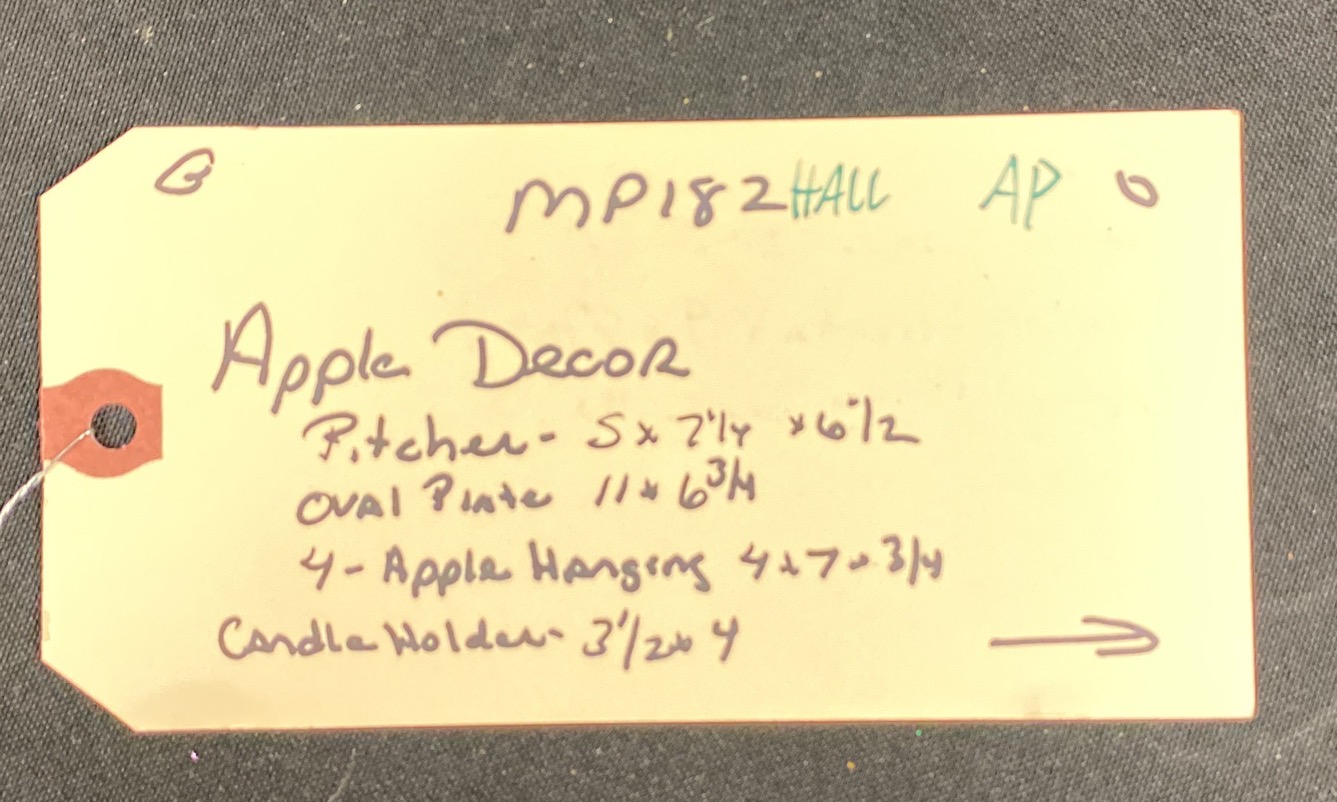 G MP182 HALL AP O
Apple Decor
Pitcher - 5 x 7 1/4 x 6 1/2
Oval Plate 11 x 6 3/4
4 - Apple Hanging 4 x 7 x 3/4
Candle Holder - 3 1/2 x 4